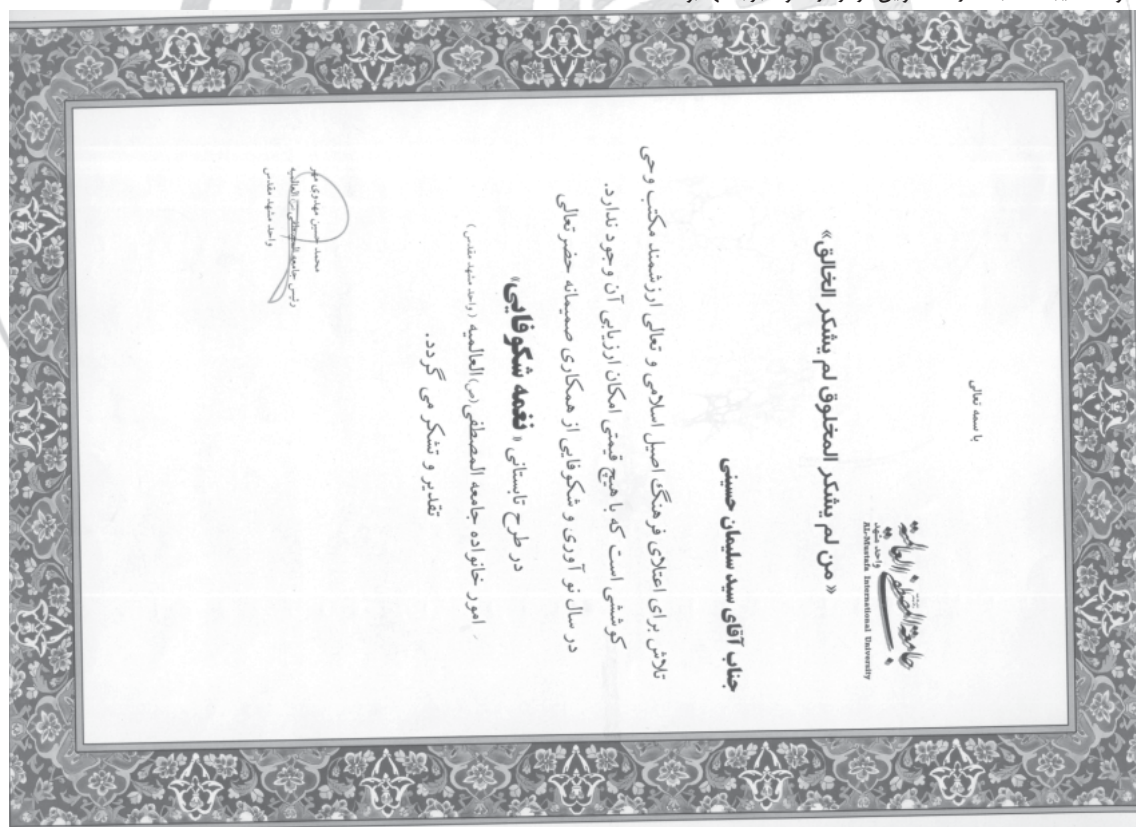 با سمه تعالی
جامعة المصطفی العالمیة
واحد مشهد
AL-Mustafa International University
« من لم یشکر المخلوق لم یشکر الخالق»
جناب آقای سید سلیمان حسینی
تلاش برای اعتلای فرهنگ اصیل اسلامی و تعالی ارزشمند مکتب وحی
کوششی است که با هیچ قیمتی امکان ارزیابی آن وجود ندارد.
در سال نو آوری و شکوفایی از همکاری صمیمانه حضرتعالی
در طرح تابستانی « نغمه شکوفایی»
امور خانواده جامعه المصطفی(ص) العالمیه (واحد مشهد مقدس)
تقدیر و تشکر می گردد.
محمد حسین مهدوی مهر
رئیس جامعه المصطفی العالمیه
واحد مشهد مقدس